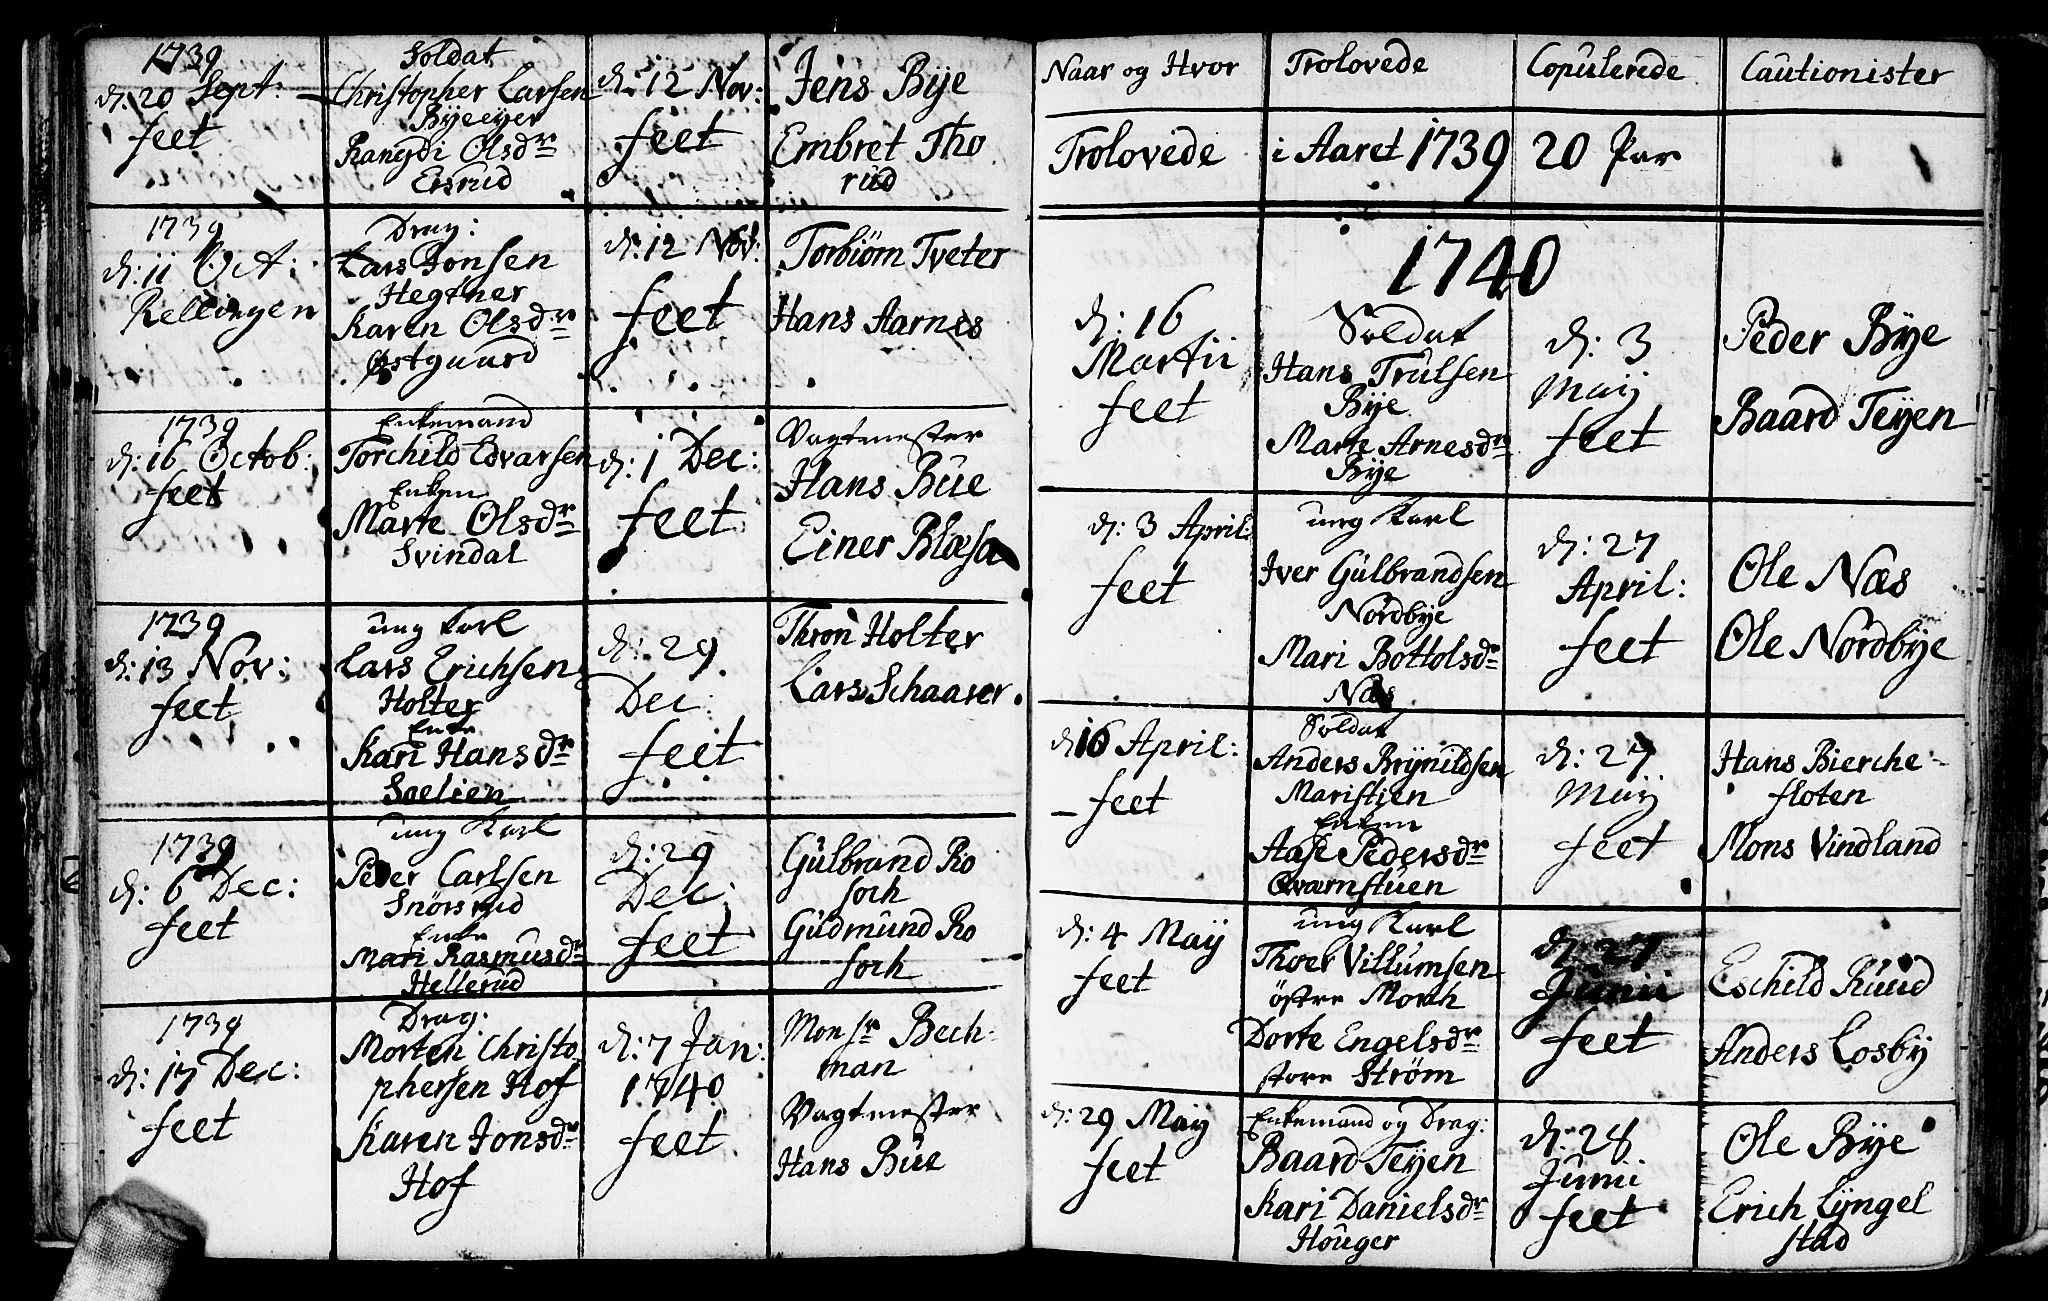 1739
d: 20 Sept:
feet
Soldat
Christopher Larsen
Byeeyer
Rangdi Olsdr
Eisrud
d: 12 Nov:
feet
Jens Bÿe
Embret Tho
rud
1739
d: 11 Oct:
Rellingen
Drag:
Lars Jonsen
Hegtner
Karen Olsdr
Østgaard
d: 12 Nov:
feet
Torbiørn Tveter
Hans Aarnes
1739
d: 16 Octob:
feet
Enkemand
Torchild Edvarsen
Enken
Marte Olsdr
Svindal
d: 1 Dec:
feet
Vagtmester
Hans Bue
Einer Blæsa
1739
d: 13 Nov:
feet
ung karl
Lars Erichsen
Holter
Enke
Kari Hansdr
Soelien
d: 29
Dec:
feet
Thron Holter
Lars Schaarer
1739
d: 6 Dec:
feet
ung Karl
Peder Carlsen
Snörsrud
Enke
Mari Rasmusdr
Hellerud
d: 29
Dec:
feet
Gulbrand Ro
soch
Gudmund Ro
soch
1739
d: 17 Dec:
feet
Drag:
Morten Christo
phersen Hof
Karen Jonsdr
Hof
d: 7 Jan:
1740
feet
Monsr Bech-
man
Vagtmester
Hans Bue
Naar og Hvor
Trolovede
Copulerede
Cautionister
Trolovede i Aaret 1739 20 Par
1740
d: 16
Martii
feet
Soldat
Hans Trulsen
Bÿe
Marte Arnesdr
Bÿe
d: 3
Maÿ
feet
Peder Bÿe
Baard Teÿen
d: 3 April:
feet
ung Karl
Iver Gulbrandsen
Nordbÿe
Mari Bottolsdr
Næs
d: 27
April:
feet
Ole Næs
Ole Nordbÿe
d: 16 April:
feet
Soldat
Anders Brÿnildsen
Maristien
Enken
Aase Pedersdr
Qværnstuen
d: 27
Maÿ
feet
Hans Bierche-
floten
Mons Vindland
d: 4 Maÿ
feet
ung Karl
Thoer Villumsen
östre Morch
Dorte Engelsdr
store Strøm
d: 27
Junii
feet
Eschild Ruud
Anders Losbÿ
d: 29 Maÿ
feet
Enkemand og Drag:
Baard Teÿen
Kari Danielsdr
Houger
d: 28
Junii
feet
Ole Bÿe
Erich Lÿngel
stad